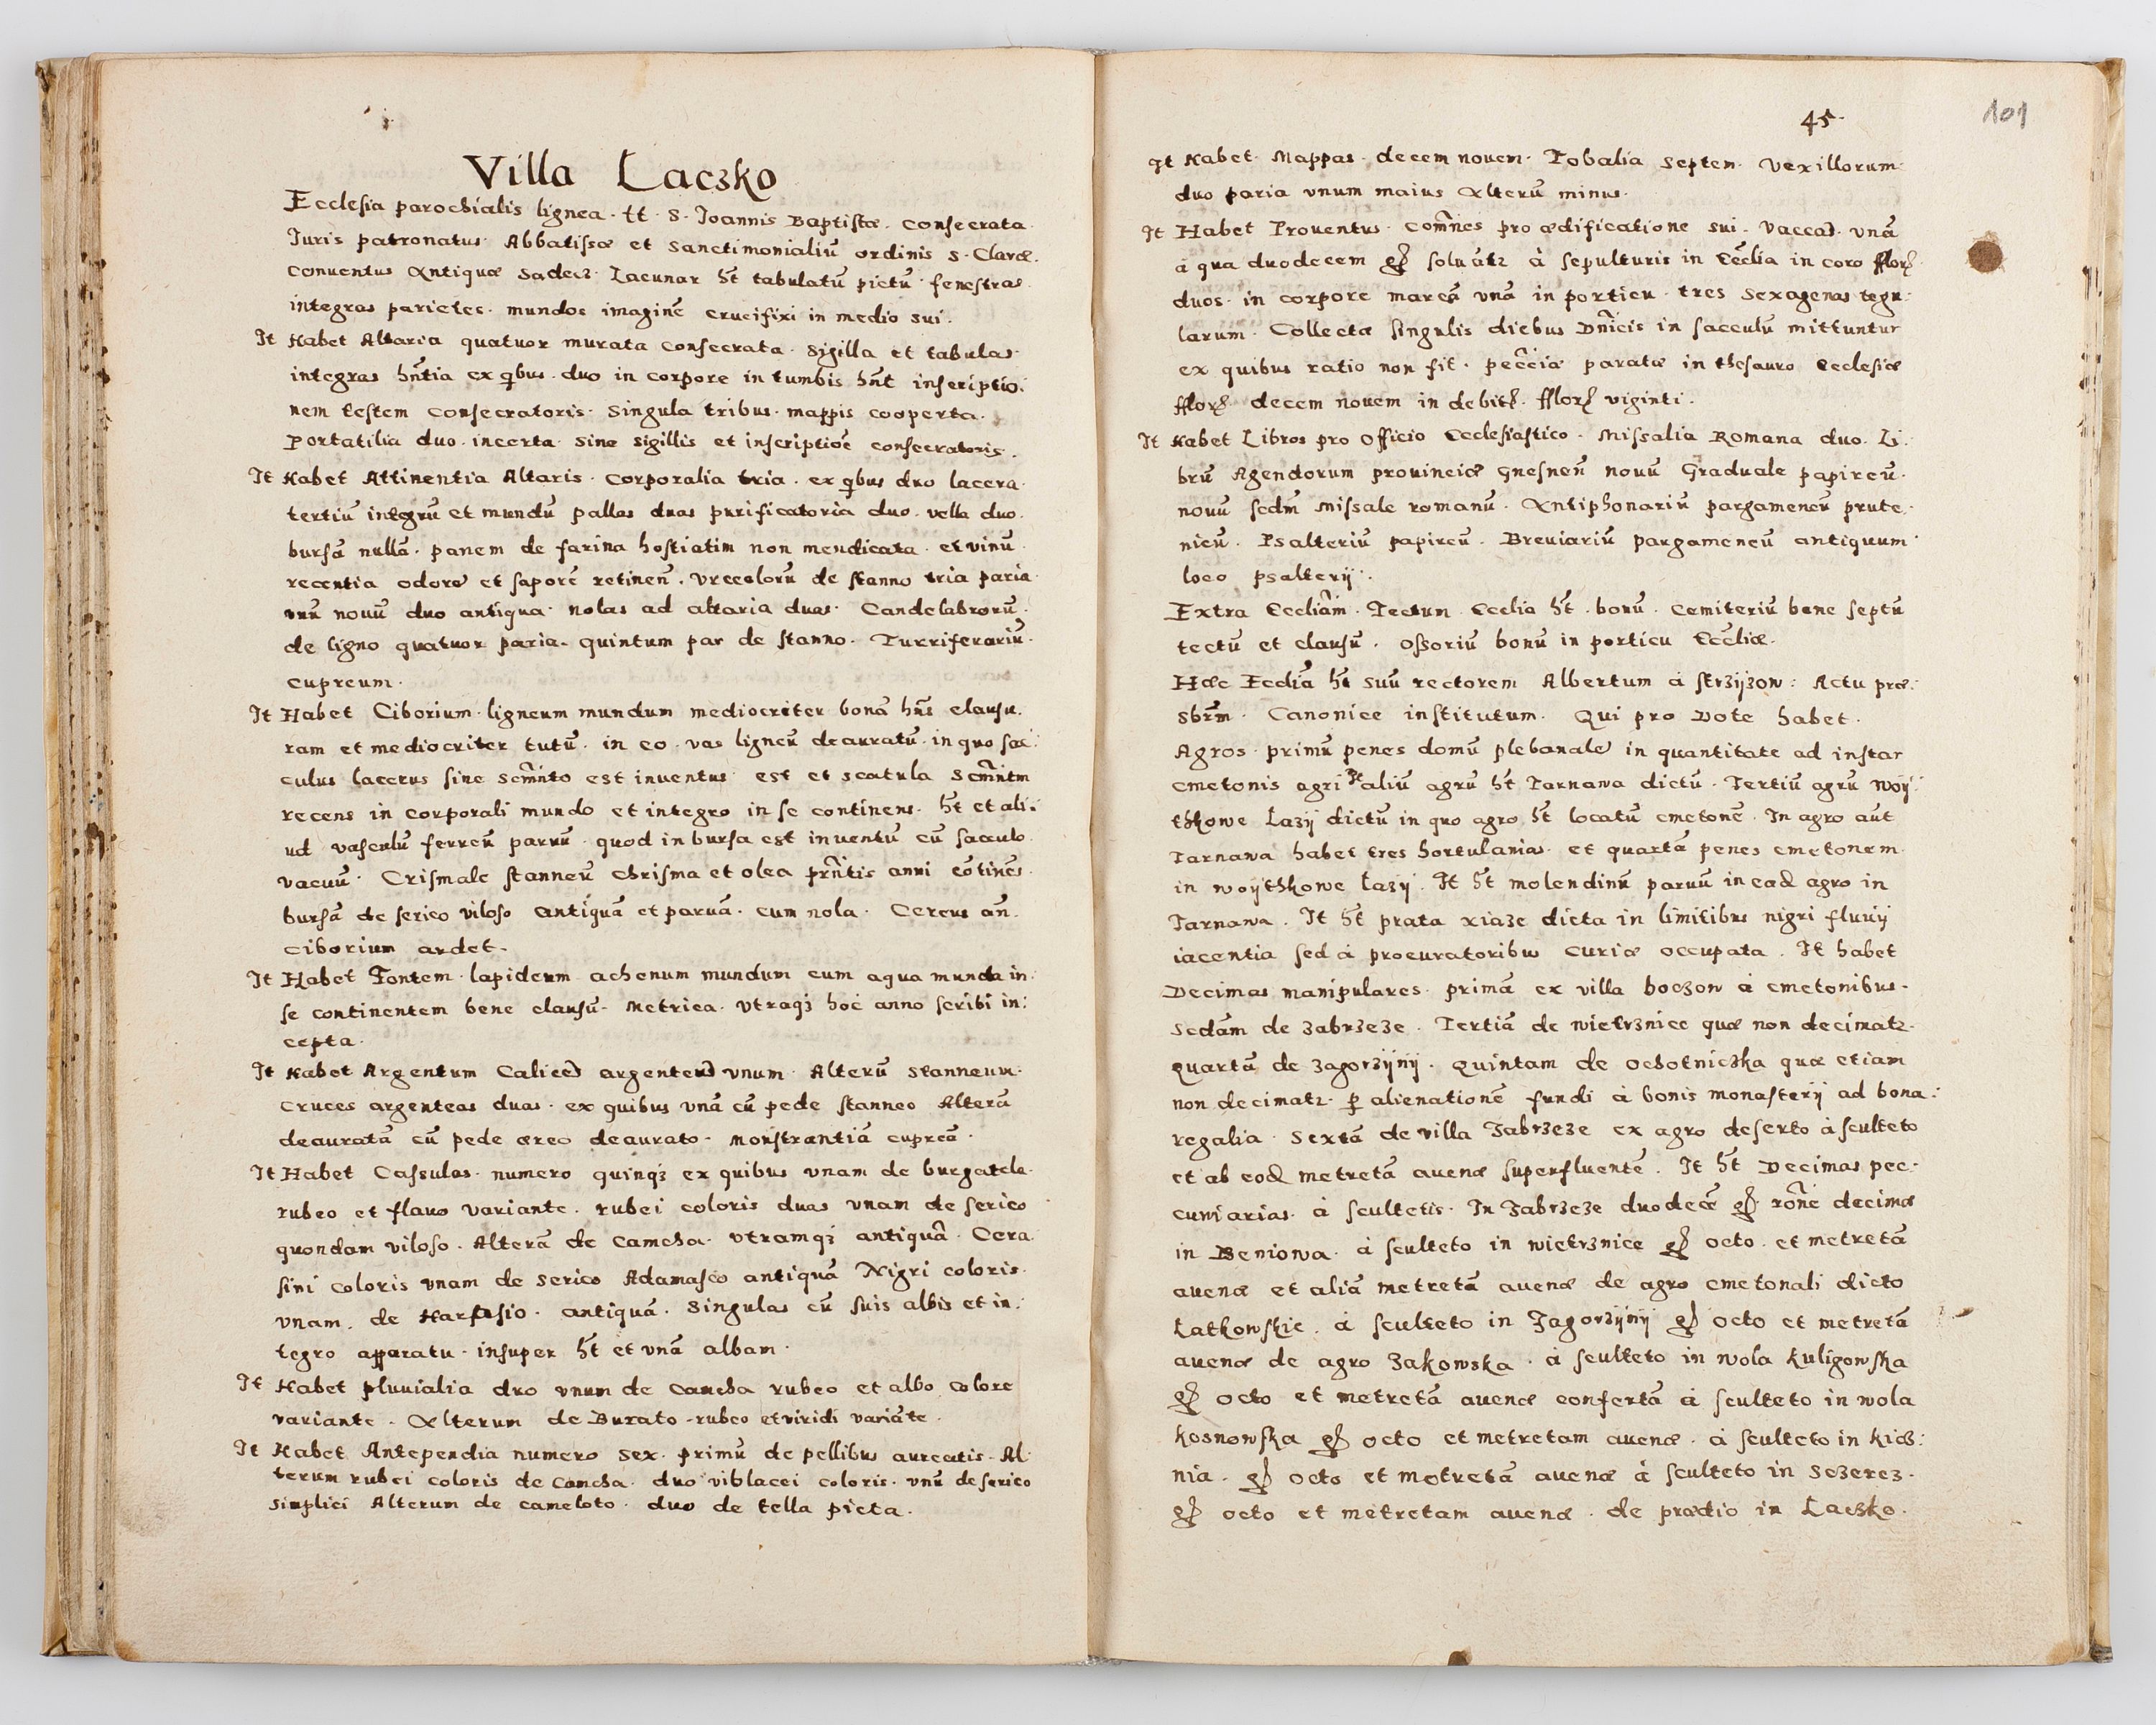 Villa Łaczko
Ecclesia parochialis lignea. tt. S. Joannis Baptistæ. consecrata.
Juris patronatus Abbatissæ et Sanctimonialiũ ordinis S. Claræ.
conuentus Antiquæ Sadecz. Lacunar hr̃t tabulatũ pictũ fenestras
integras parietes. mundos imaginẽ crucifixi in medio sui.
It Habet Altaria quatuor murata consecrata. Sigilla et tabulas
integras hñtia ex q̃bus. duo in corpore in tumbis hñt inscriptio:
nem testem consecratoris. Singula tribus. mappis cooperta.
Portatilia duo. incerta sine sigillis et inscriptiõe consecratoris.
It Habet Attinentia Altaris. Corporalia tria. ex q̃bus duo lacera.
tertiũ integrũ et mundũ pallas duas purificatoria duo. vella duo.
bursã nullã. panem de farina hostiatim non mendicata. et vinũ
recentia odore et sapore retineñ. vrceolorũ de stanno tria paria
vnũ nouũ duo antiqua. nolas ad altaria duas. Candelabrorũ.
de ligno quatuor paria. quintum par de stanno. Turriferariũ.
cupreum.
It Habet Ciborium. ligneum mundum mediocriter bonã hñs clausu.
ram et mediocriter tutũ. in eo. vas ligneũ deauratũ. in quo sac:
culus lacerus sine scm̃nto est inuentus est et scatula scm̃ntm
recens in corporali mundo et integro in se continens. hr̃t et ali:
ud vasculũ ferreũ paruũ quod in bursa est inuentũ cũ sacculo
vacuũ. Crismale stanneũ chrisma et olea prñtis anni cõtineñs.
bursã de serico viloso antiquã et paruã. cum nola. Cereus añ.
ciborium ardet.
It Habet Fontem. lapideum achenum mundum cum aqua munda in:
se continentem bene clausũ. Metrica. vtraqȝ hoc anno scribi in:
cepta.
It Habet Argentum Calices argenteus vnum. Alterũ stanneum.
cruces argenteas duas. ex quibus vnã cũ pede stanneo Alterã
deauratã cũ pede æreo deaurato. Monstrantiã cupreã.
It Habet Cassulas. numero quinqȝ ex quibus vnam de burgatela.
rubeo et flauo variante. rubei coloris duas vnam de serico
quondam viloso. Alterã de Camcha. vtramqȝ antiquã. Cera
sini coloris vnam de serico Adamasco antiquã Nigri coloris.
vnam. de Harfasio. antiquã. Singulas cũ suis albis et in:
tegro apparatu. insuper hr̃t et vnã albam.
It Habet pluuialia duo vnum de camcha rubeo et albo colore
variante. Alterum de Burato rubeo et viridi variãte.
It Habet Antependia numero sex. primũ de pellibus aureatis. Al:
terum rubei coloris de Camcha. duo viblacei coloris. vnũ de serico
simplici Alterum de cameloto. duo de tella picta.
45.
101
It Habet. Mappas. decem nouem. Tobalia septem. Vexillorum
duo paria vnum maius Alterũ minus.
It Habet Prouentus. com̃nes pro ædificatione sui. vaccas. vnã
à qua duodecem gʃ soluãtz à sepulturis in Ecc̃lia in coro fflorʃ
duos. in corpore marcã vnã in porticu. tres sexagenas tegu:
larum. Collectæ singulis diebus Dñicis in sacculũ mittuntur
ex quibus ratio non fit. pecc̃iæ paratæ in thesauro Ecclesiæ
fflorʃ decem nouem in debitʃ. fflorʃ viginti.
It Habet Libros pro Officio Ecclesiastico. Missalia Romana duo. Li:
brũ Agendorum prouinciæ Gnesneñ nouũ Graduale papireũ.
nouũ scdm̃ Missale romanũ. Antiphonariũ pargameneũ prute:
nicũ. Psalteriũ papireũ. Breuiariũ pargameneũ antiquum
loco psalterij.
Extra Eccliãm. Tectum Ecc̃lia hr̃t. bonũ. Cemiteriũ bene septũ
tectũ et clausũ. Ossoriũ bonũ in porticu Ecc̃liæ.
Hæc Ecc̃lia hr̃t suũ rectorem Albertum à strzijzow: Actu præ:
sbrm̃. Canonice institutum. Qui pro Dote habet.
Agros. primũ penes domũ plebanale in quantitate ad instar
cmetonis agri It aliũ agrũ hr̃t Tarnawa dictũ. Tertiũ agrũ Woij:
thkowe Łazij dictũ in quo agro hr̃t locatũ cmetonẽ. In agro aũt
Tarnawa habet tres hortulanias. et quartã penes cmetonem
in woijthkowe Łazij. It hr̃t molendinũ paruũ in eod agro in
Tarnawa. It hr̃t prata xiaze dicta in limitibus nigri fluuij
iacentia sed à procuratoribus curiæ occupata. It habet
Decimas manipulares. primã ex villa boczow à cmetonibus.
Secdãm de zabrzeze. Tertiã de wietrznice quæ non decimatz.
quartã de zagorzijnij. Quintam de ochotniczka quæ etiam
non decimatz. p̱ alienationẽ fundi à bonis monasterij ad bona:
regalia. Sextã de villa Zabrzeze ex agro deserto à sculteto
et ab eod metretã auenæ superfluentẽ. It hr̃t Decimas pec:
cuniarias. à scultetis. In Zabrzeze duodecẽ gʃ. rõne decimæ
in Beniowa. à sculteto in wietrznice gʃ octo. et metretã
auenæ et aliã metretã auenæ de agro cmetonali dicto
Łatkowskie. à sculteto in Zagorzijnij gʃ octo et metretã
auenæ de agro Zakowska. à sculteto in wola kuligowska
gʃ octo et metretã auenæ confertã à sculteto in wola
kosnowska gʃ octo et metretam auenæ. à sculteto in kicz:
nia. gʃ octo et metretã auenæ à sculteto in Sczerez.
gʃ octo et metretam auenæ. de prædio in Łaczko.